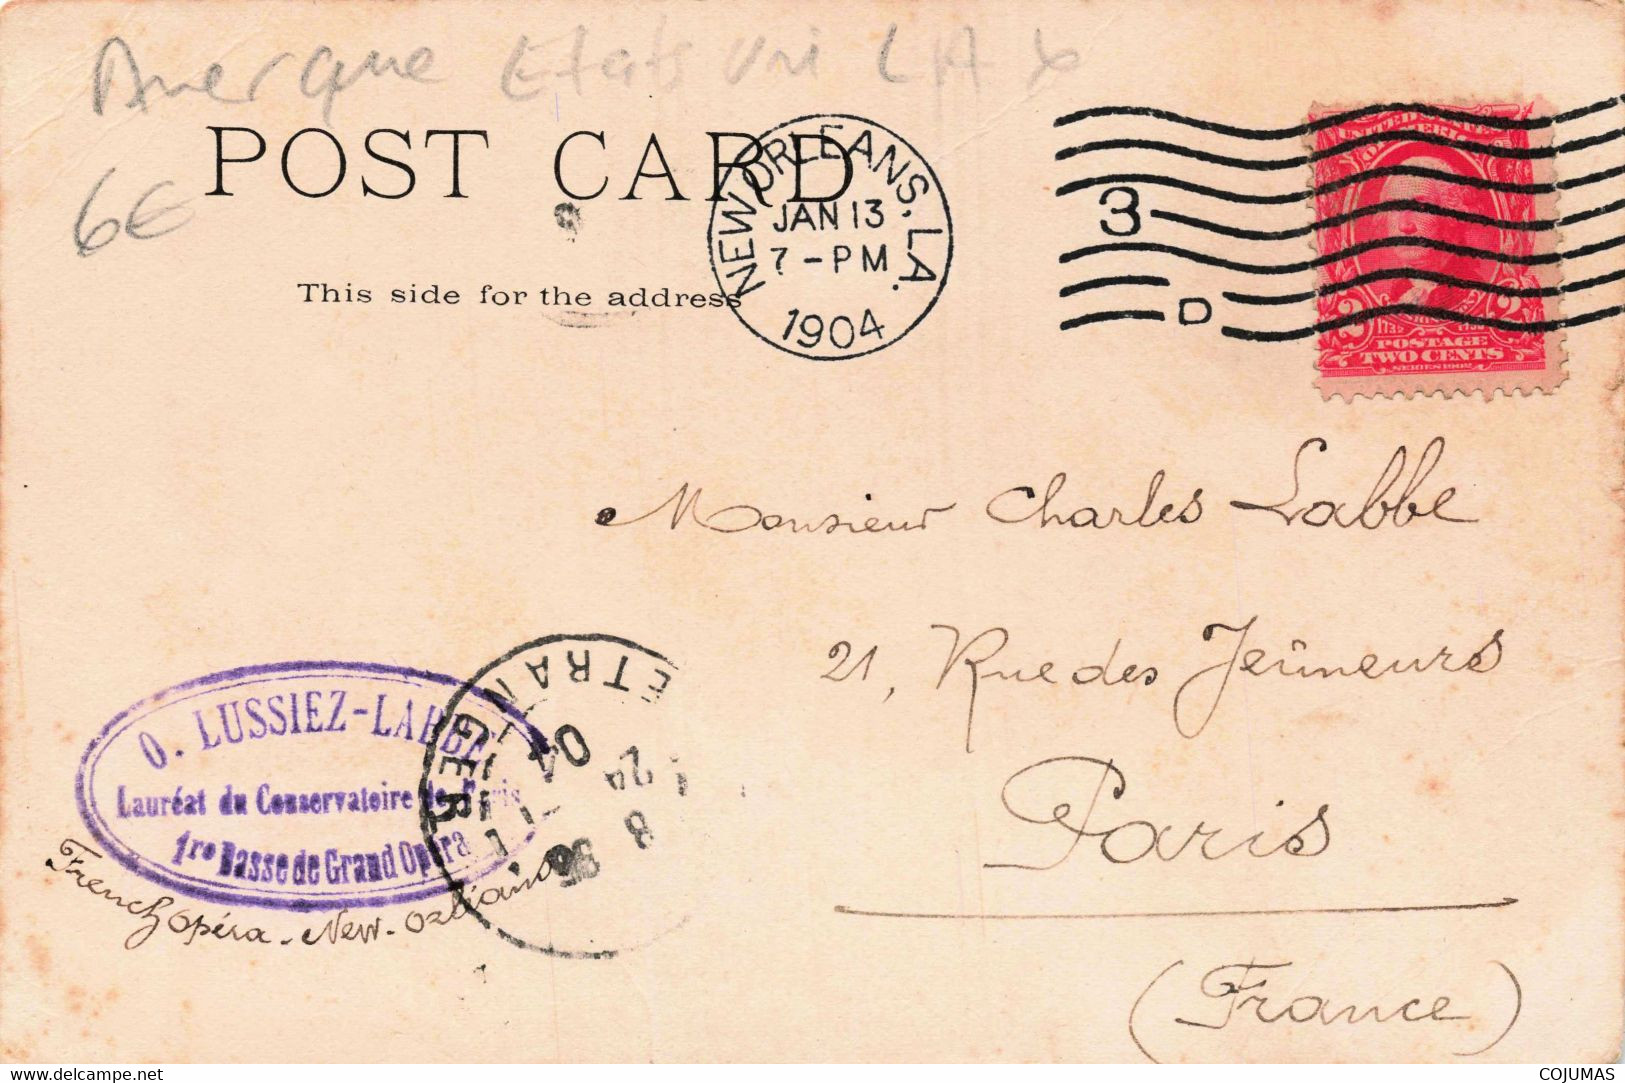 Amerque Etats Uni LA
6€
POST CARD
This side for the address
NEW ORLEANS, LA.
JAN 13
7 - PM
1904
3
D
UNITED STATES
OF AMERICA
2 2
1732 1799
POSTAGE
TWO CENTS
SERIES 1902
Monsieur Charles Labbe
21, Rue des Jeûneurs
Paris
(France)
O. LUSSIEZ-LABBE
Lauréat du Conservatoire de Paris
1re Basse de Grand Opéra
French Opéra - New-Orléans
ETRANGER
04
24
8
COJUMAS